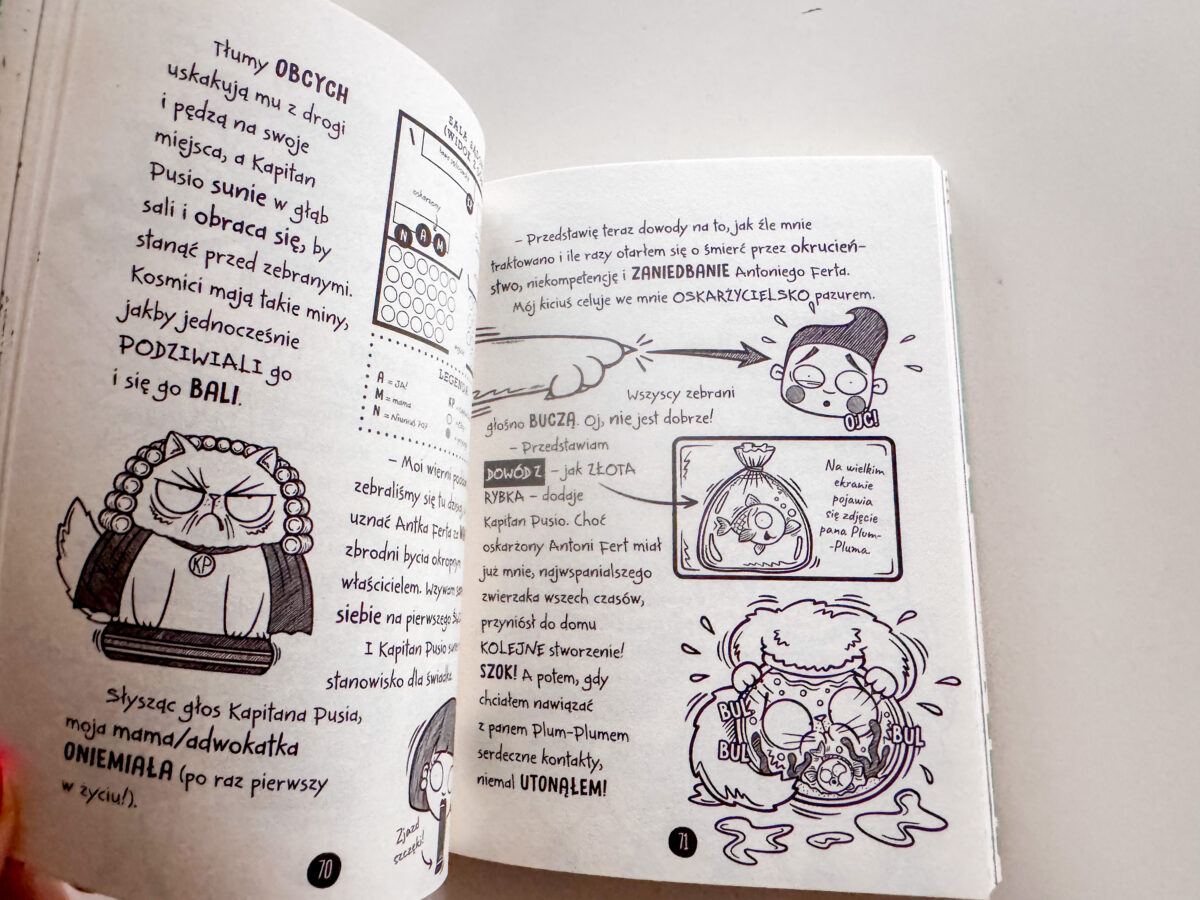 Tłumy OBCYCH
uskakują mu z drogi
i pędzą na swoje
miejsca, a Kapitan
Pusio sunie w głąb
sali i obraca się, by
stanąć przed zebranymi.
Kosmici mają takie miny,
jakby jednocześnie
PODZIWIALI go
i się go BALI.
SALA
(WIDOK Z
oskarżony
N A M
LEGENDA
A = JA!
M = mama
N =
KP
KP
– Moi wierni
zebraliśmy się tu
uznać Antka Ferta za
zbrodni bycia okropnym
właścicielem. Wzywam
siebie na pierwszego
I Kapitan Pusio
stanowisko dla świadka
Słysząc głos Kapitana Pusia,
moja mama/adwokatka
ONIEMIAŁA (po raz pierwszy
w życiu!).
Zjazd
szczęki!
70
– Przedstawię teraz dowody na to, jak źle mnie
traktowano i ile razy otarłem się o śmierć przez okrucień-
stwo, niekompetencję i ZANIEDBANIE Antoniego Ferta.
Mój kiciuś celuje we mnie OSKARŻYCIELSKO pazurem.
OJC!
Wszyscy zebrani
głośno BUCZĄ. Oj, nie jest dobrze!
– Przedstawiam
DOWÓD Z – jak ZŁOTA
RYBKA – dodaje
Kapitan Pusio. Choć
oskarżony Antoni Fert miał
już mnie, najwspanialszego
zwierzaka wszech czasów,
przyniósł do domu
KOLEJNE stworzenie!
SZOK! A potem, gdy
chciałem nawiązać
z panem Plum-Plumem
serdeczne kontakty,
niemal UTONĄŁEM!
Na wielkim
ekranie
pojawia
się zdjęcie
pana Plum-
-Pluma
BUL
BUL
BUL
71